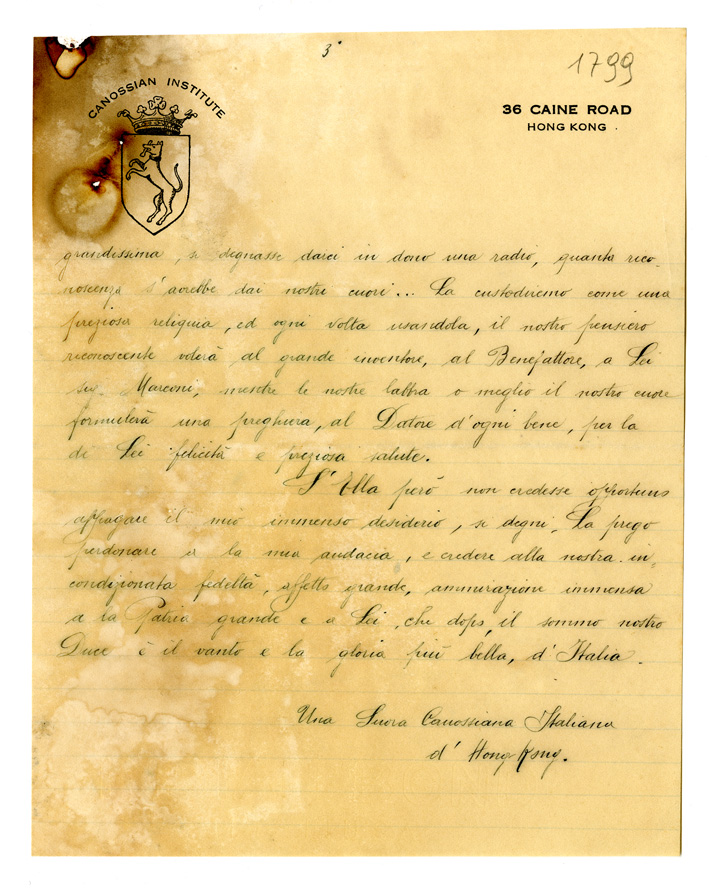 3°
1799
CANOSSIAN INSTITUTE
36 CAINE ROAD
HONG KONG.
grandissima, si degnasse darci in dono una radio, quanta rico-
noscenza s'avrebbe dai nostri cuori... La custodiremo come una
preziosa reliquia, ed ogni volta usandola, il nostro pensiero
riconoscente volerà al grande inventore, al Benefattore, a Lei
Marconi, mentre le nostre labbra o meglio il nostro cuore
formulerà una preghiera, al Datore d'ogni bene, per la
di Lei felicità e preziosa salute.
S'Ella però non credesse opportuno
appagare il mio immenso desiderio, si degni, La prego
perdonare a la mia audacia, e credere alla nostra in-
condizionata fedeltà, affetto grande, ammirazione immensa
a la Patria grande e a Lei, che dopo, il sommo nostro
Duce è il vanto e la gloria più bella, d'Italia.
Una Suora Canossiana Italiana
d'Hong Kong.